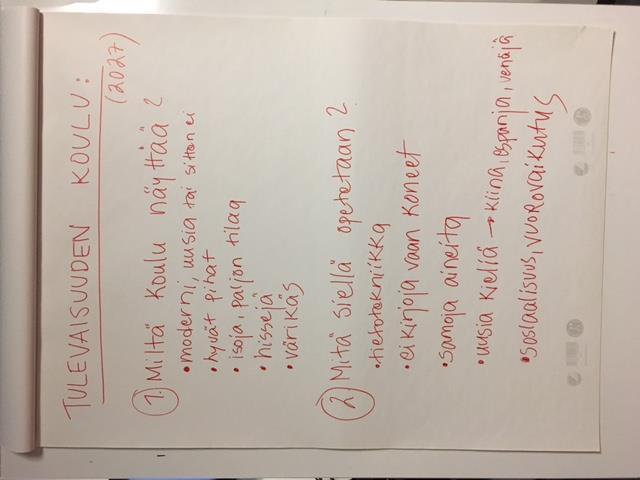 TULEVAISUUDEN KOULU:
(2027)
1. Miltä koulu näyttää?
• moderni, uusia tai sitten ei
• hyvät pihat
• isoja, paljon tilaa
• hissejä
• värikäs
2. Mitä siellä opetetaan?
• tietotekniikka
• ei kirjoja vaan koneet
• samoja aineita
• uusia kieliä → kiina, espanja, venäjä
• sosiaalisuus, vuorovaikutus